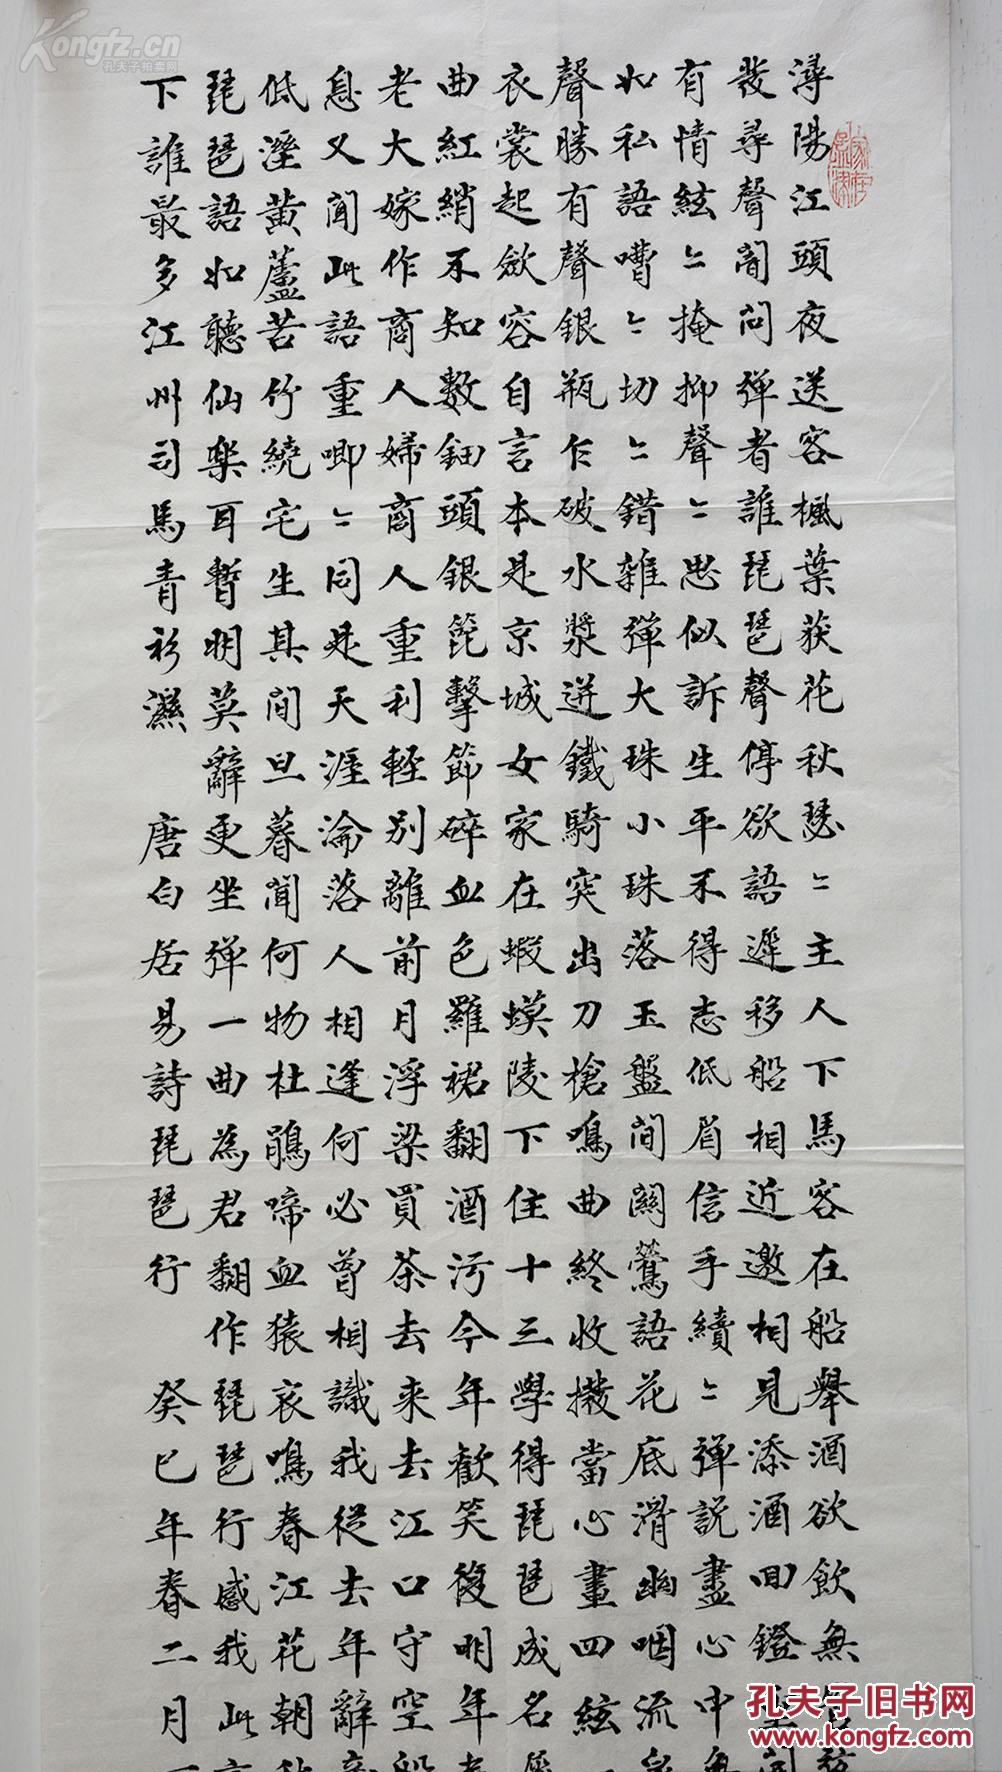 潯陽江頭夜送客楓葉荻花秋瑟〻主人下馬客在船舉酒欲飲無管
發尋聲闇問弹者誰琵琶聲停欲語遲移船相近邀相見添酒回鐙重開
有情絃〻掩抑聲〻思似訴生平不得志低眉信手續〻弹說盡心中無
如私語嘈〻切〻錯雜弹大珠小珠落玉盤間關鶯語花底滑幽咽流泉
聲勝有聲銀瓶乍破水漿迸鐵騎突出刀槍鳴曲終收撥當心畫四絃一
衣裳起斂容自言本是京城女家在蝦蟆陵下住十三學得琵琶成名屬
曲紅綃不知數鈿頭銀篦擊節碎血色羅裙翻酒污今年歡笑復明年
老大嫁作商人婦商人重利輕別離前月浮梁買茶去来去江口守空船
息又聞此語重唧〻同是天涯淪落人相逢何必曾相識我從去年辭帝
低溼黄蘆苦竹繞宅生其間旦暮聞何物杜鵑啼血猿哀鳴春江花朝秋
琵琶語如聽仙樂耳暫明莫辭更坐弹一曲為君翻作琵琶行感我此言
下誰最多江州司馬青衫濕 唐白居易詩琵琶行 癸巳年春二月
Kongfz.cn
孔夫子拍卖网
孔夫子旧书网
www.kongfz.com